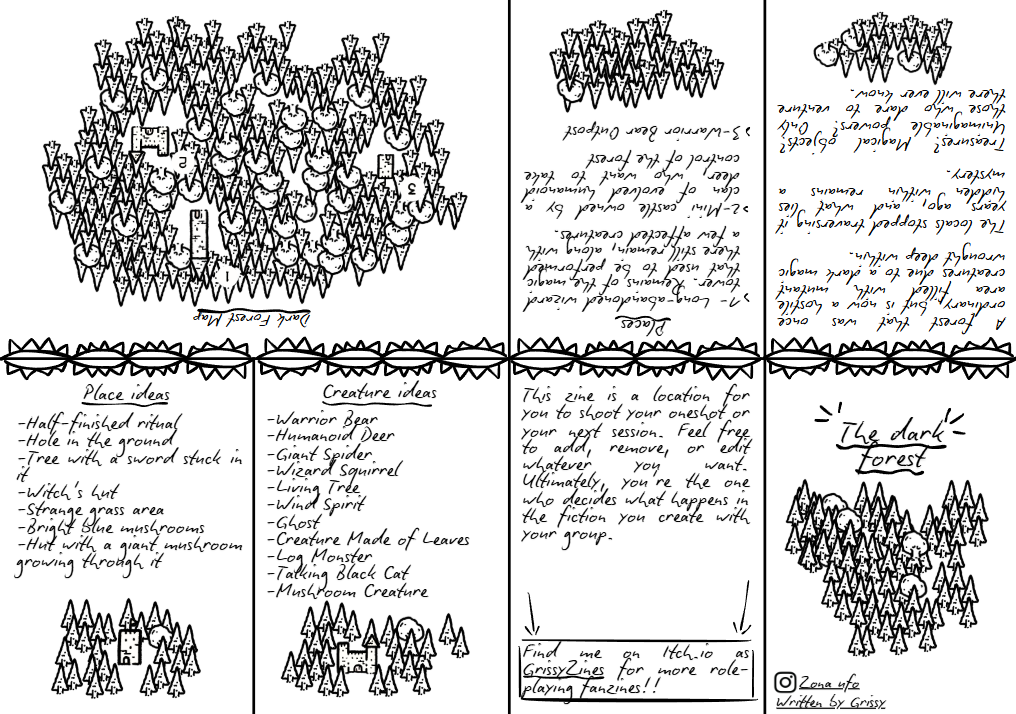 Dark Forest Map
1
2
3
Places
>1- Long-abandoned wizard
tower. Remains of the magic
that used to be performed
there still remain, along with
a few affected creatures.
>2-Mini castle owned by a
clan of evolved humanoid
deer who want to take
control of the forest
>3-Warrior Bear Outpost
A forest that was once
ordinary, but is now a hostile
area filled with mutant
creatures due to a dark magic
wrought deep within.
The locals stopped traversing it
years ago, and what lies
hidden within remains a
mystery.
Treasures? Magical objects?
Unimaginable powers? Only
those who dare to venture
there will ever know.
Place ideas
-Half-finished ritual
-Hole in the ground
-Tree with a sword stuck in
it
-Witch's hut
-Strange grass area
-Bright blue mushrooms
-Hut with a giant mushroom
growing through it
Creature ideas
-Warrior Bear
-Humanoid Deer
-Giant Spider
-Wizard Squirrel
-Living Tree
-Wind Spirit
-Ghost
-Creature Made of Leaves
-Log Monster
-Talking Black Cat
-Mushroom Creature
This zine is a location for
you to shoot your oneshot or
your next session. Feel free
to add, remove, or edit
whatever you want.
Ultimately, you're the one
who decides what happens in
the fiction you create with
your group.
Find me on Itch.io as
GrissyZines for more role-
playing fanzines!!
The dark
forest
Zona nfo
Written by Grissy